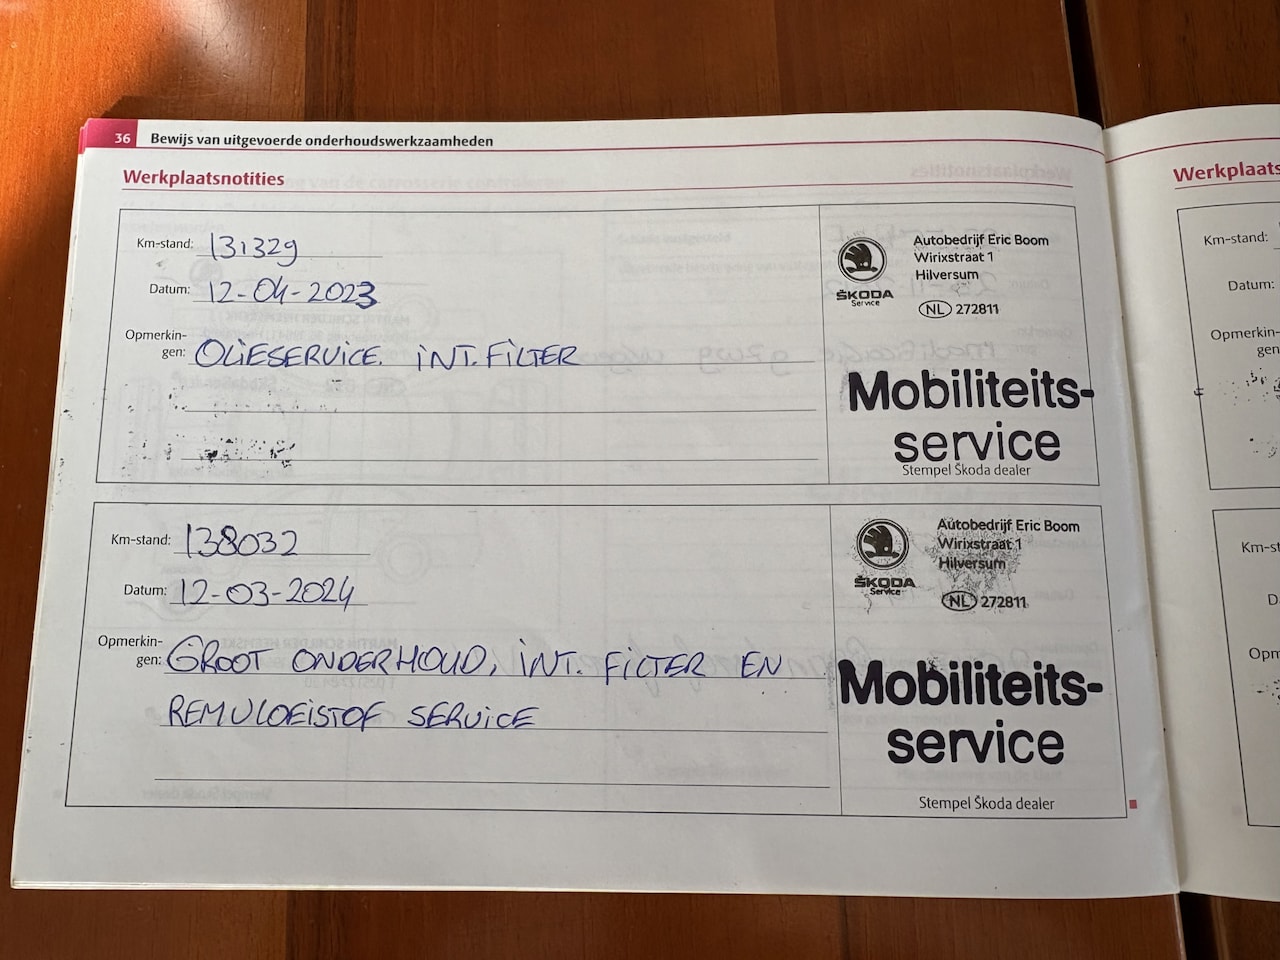 36 Bewijs van uitgevoerde onderhoudswerkzaamheden
Werkplaatsnotities
Km-stand: 131329
Datum: 12-04-2023
Opmerkin-
gen: OLIESERVICE. INT. FILTER
ŠKODA
Service
Autobedrijf Eric Boom
Wirixstraat 1
Hilversum
NL 272811
Mobiliteits-
service
Stempel Škoda dealer
Km-stand: 138032
Datum: 12-03-2024
Opmerkin-
gen: GROOT ONDERHOUD, INT. FILTER EN
REMVLOEISTOF SERVICE
ŠKODA
Service
Autobedrijf Eric Boom
Wirixstraat 1
Hilversum
NL 272811
Mobiliteits-
service
Stempel Škoda dealer
Werkplaats
Km-stand:
Datum:
Opmerkin-
gen
Km-st
D
Opm